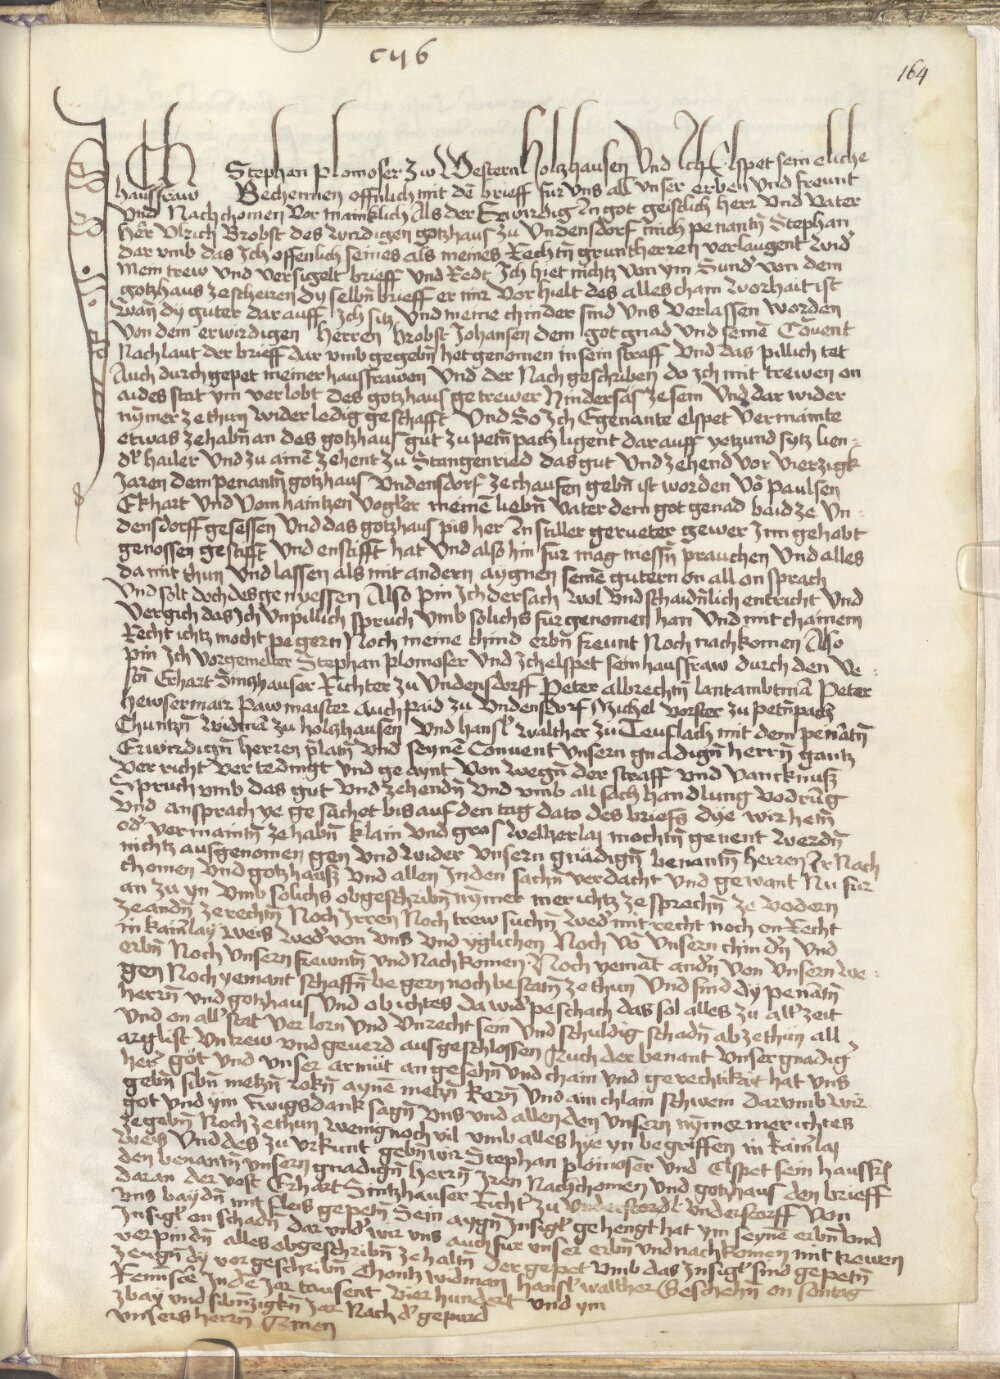 cy6
164
Ich Stephan plomoser zw Westernholtzhausen Vnd Ich Elspet sein eliche
hausfraw Bechennen offnlich mit dē brieff fur vns all vnser erben Vnd freunt
Vnd Nachchomen Vor manklich Als der Erwirdig In got geistlich herr Vnd Vater
her Vlrich Brobst des wirdigen gotzhaus zu Vndensdorf mich penantñ Stephan
dar vmb das Ich offenlich seines als meines Rechtñ gruntherren verlaugent wid
mein trew Vnd versigelt brieff Vnd Redt Ich hiet nichtz von ym Sund von dem
gotzhaus ze scheiren dy selbñ brieff er mir Vor hielt des alles cham worhait ist
Wañ dy guter darauff Ich sitz Vnd meine chinder sind Vns verlassen worden
Von dem erwirdigen herren Brobst Johansen dem got gnad Vnd seinē Covent
Nach laut der brieff dar vmb gegebñ het genomen in sein straff Vnd das pillich tet
Auch durch gepet meiner hausfrawen Vnd der Nach geschriben do Ich mit trewen on
aides stat ym verlobt des gotzhaus getrewer hindersäs ze sein Vnd dar wider
nymer ze thun wider ledig geschafft Vnd So Ich Egenante elspet vermainte
etwas ze habñ an des gotzhaus gut zu petñpach ligent darauff yetzund sytz lien
hailer Vnd zu ainē zehent zu Stangenried das gut Vnd zehend vor vierzigk
Jaren dem penantñ gotzhaus Vndensdorf ze chaufen gebñ ist worden vō paulsen
Ekhart Vnd Vom haintzen vogler meinē liebñ Vater dem got genad baid ze Vn
densdorff gesessen Vnd das gotzhaus pis her In stiller gerueter gewer Inn gehabt
genossen gestifft Vnd enstifft hat Vnd also hin fur mag niessñ prauchen Vnd alles
da mit thun Vnd lassen als mit andern aygnen seinē gutern on all on sprach
Vnd solt doch des genyessen Also pin Ich der sach wol Vnd schaidnlich entricht Vnd
Vergich das Ich Vnpillich spruch vmb solichs fur genomen han Vnd mit chainem
Recht ichtz mocht pegern Noch meine chind erbñ freunt Noch nachkomen Also
pin Ich Vorgemelter Stephan plomoser Vnd Ich elspet sein hausfraw durch den Ve
stñ Erhart Sintzhauser Richter zu Vndensdorff Peter albrechtñ lantambtmā Peter
hewsermair Pawmaister Auch paid zu Vndensdorf Michel vorster zu petñpach
Chuntzñ widmā zu holtzhausen Vnd hansl walther zu Teuflach mit dem penātñ
Erwirdigñ herren prlatñ Vnd seynē Convent Vnsern gnadigñ herrñ gantz
Ver richt Ver tedingt Vnd ge aynt Von wegñ der straff Vnd Vancknuß
Spruch vmb das gut Vnd zehendñ Vnd vmb all sach handlung Vodrūg
Vnd ansprach ye ge sachet bis auf den tag dato des briefs dye wir hetñ
od vermaintñ ze habñ klain Vnd gros welherlaj mochtñ genent werdñ
nichtz ausgenomen gen Vnd wider Vnsern gnädigñ benantñ herren Ir Nach
chomen Vnd gotzhauß Vnd allen In den sachñ verdacht Vnd gewant Nu fur
an zu yn Vmb solichs obgeschribñ nymer mer ichtz ze sprachñ ze Vodern
ze andñ ze rechtñ Noch Irren Noch trew suchñ wed mit recht noch on Recht
in kainlay weis wed von Vns Vnd yglichen Noch Vō Vnsern chindñ Vnd
erbñ Noch Vnsern frewntñ Vnd Nachkomen Noch yemāt andñ von Vnsern we
gen Noch yemant schaffñ begern noch bestatñ ze thun Vnd sind dy penātñ
herrñ Vnd gotzhaus Vnd ob ichtes da wid peschach das sol alles zu all zeit
Vnd on all stat Ver lorn Vnd Vnrecht sein Vnd schuldig schadñ ab zethun all
arglist Vntrew Vnd geuerd ausgeschlossen Auch der benant Vnser gnadig
her göt Vnd Vnser armüt angesehñ Vnd chain Vnd gerechtikait hat Vns
gebñ sibñ metzñ rokñ aynē metzñ kerñ Vnd ain chlain schwein darvmb wir
got Vnd ym Ewigs dank sagñ Vns Vnd allen den Vnsern nymermer ichtes
ze gebñ Noch ze thun wenig noch vil vmb alles hye yn begriffen in kainlaj
weis Vnd des zu Vrkunt gebñ wir Stephan plomoser Vnd Elspet sein hausfr
den benantñ vnsern gnadigñ herrñ Iren Nachchomen Vnd gotzhaus den brieff
daran der vest Erhart Sintzhauser Richt zu Vnderstorff Von
Vns baydñ mit fleis gepetñ Sein aygñ Insigl gehengt hat ym seynē erbñ Vnd
Insigl on schadñ dar Vnd wir Vns auch fur Vnser erbñ Vnd nachkomen mit trewen
verpindñ alles obgeschribñ ze haltñ der gepet Vmb das Insigl sind gepetñ
zeugñ dy vorgeschribñ Chontz widman hansl walther Geschehñ on sontag
Reminisce In dē Jar tausent Vier hundert Vnd ym
zway Vnd sibñzigkñ Jar Nach d gepurd
Vnsers herrñ Amen